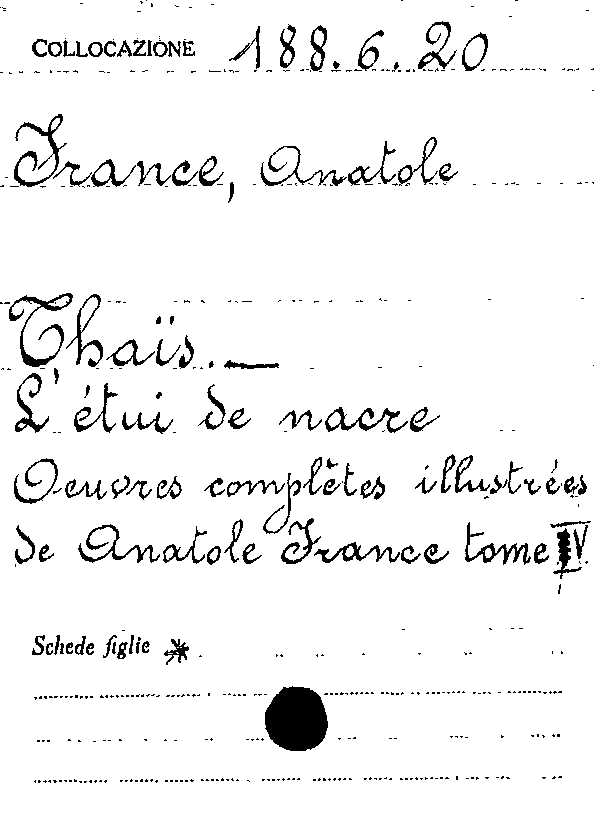 COLLOCAZIONE 188.6.20
France, Anatole
Thaïs. —
L'étui de nacre
Oeuvres complètes illustrées
de Anatole France tome
Schede figlie *